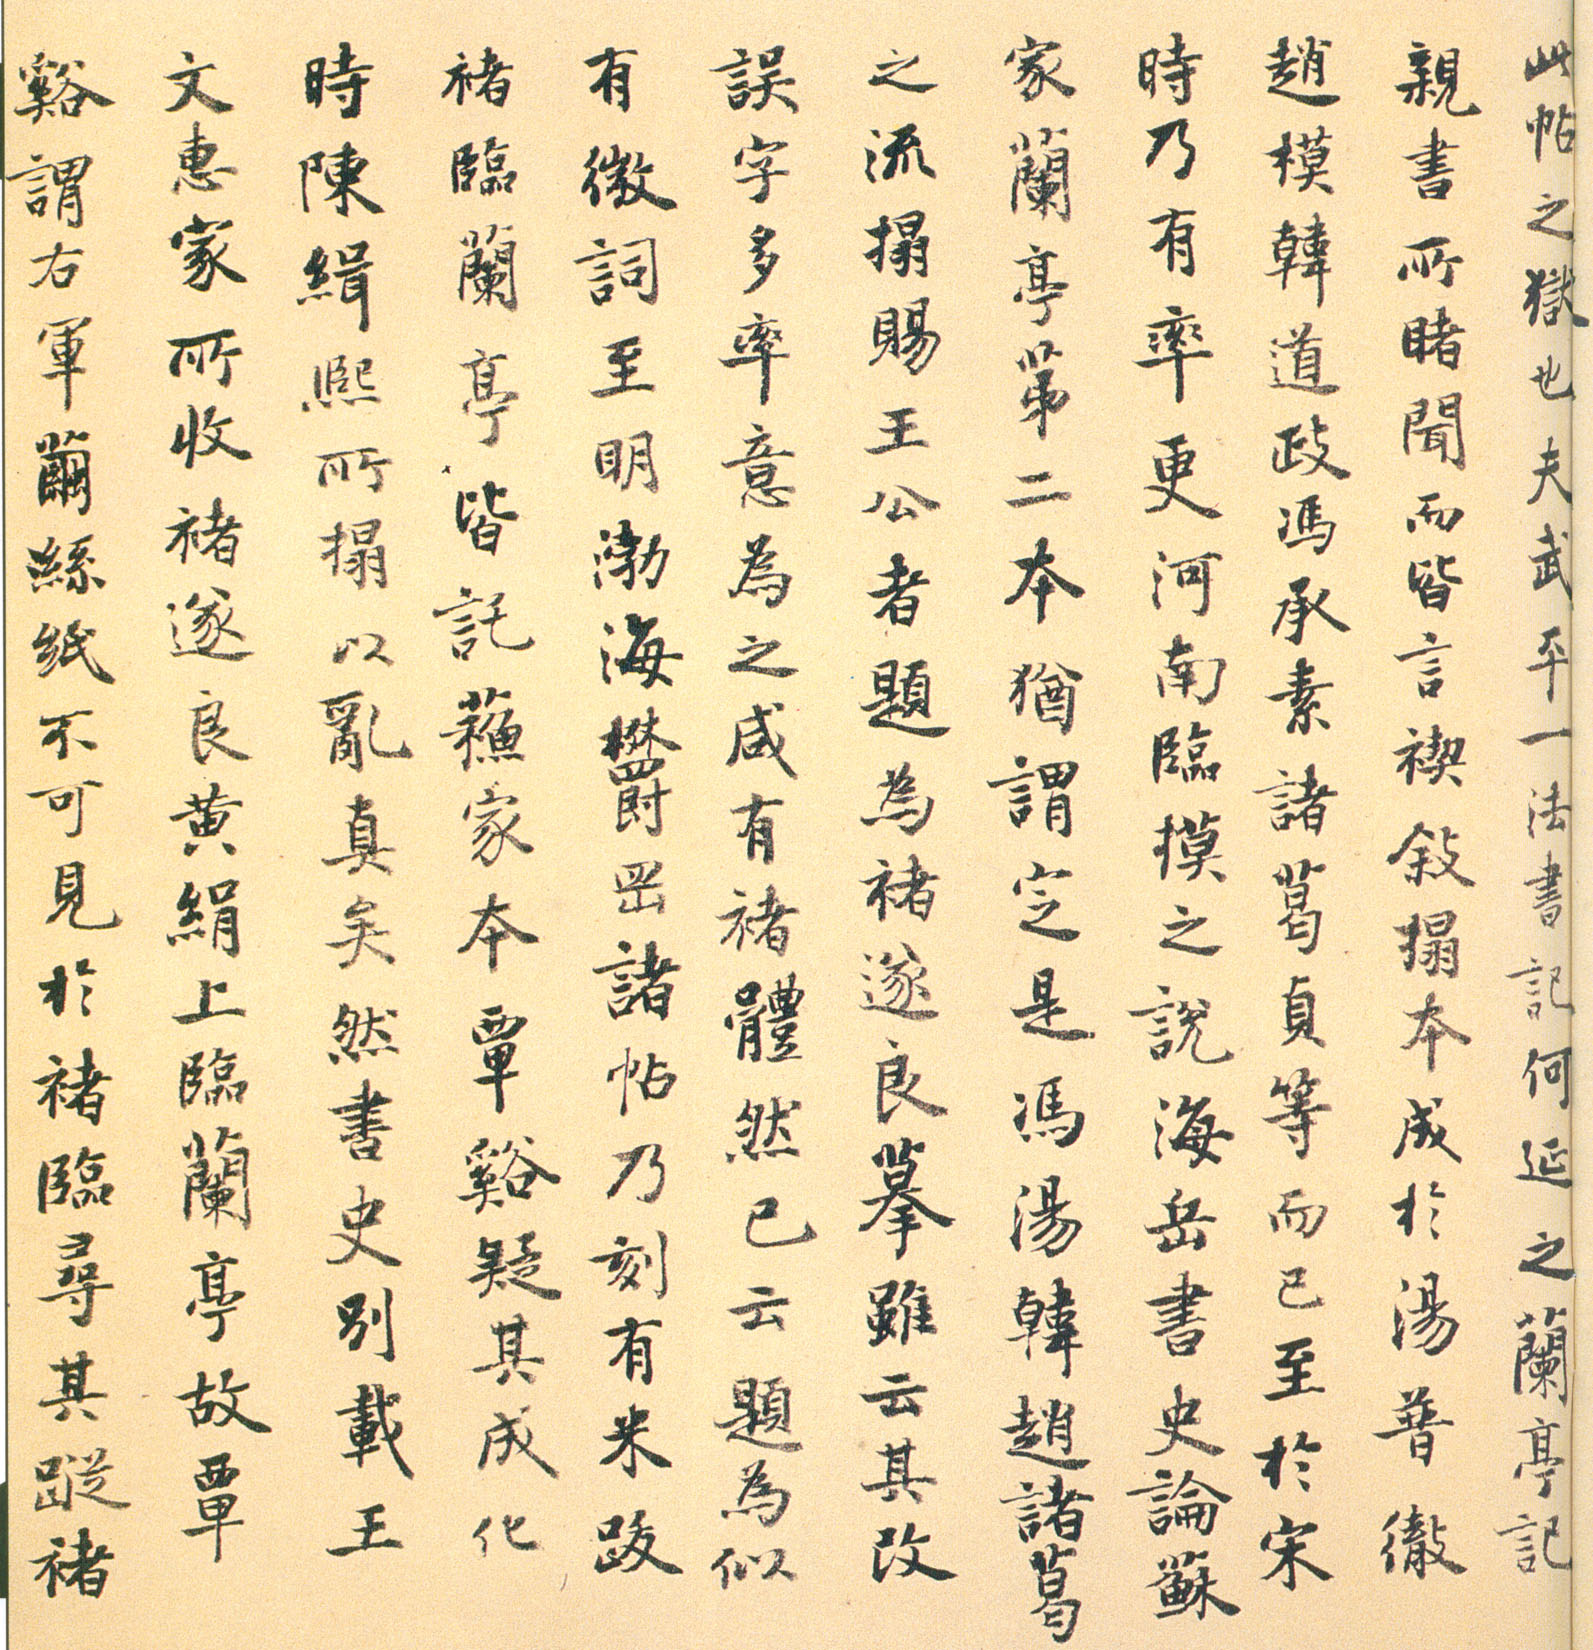 此帖之獄也夫武平一法書記何延之蘭亭記
親書所睹聞而皆言禊敘搨本成於湯普徹
趙模韓道政馮承素諸葛貞等而已至於宋
時乃有率更河南臨摸之說海岳書史論蘇
家蘭亭第二本猶謂定是馮湯韓趙諸葛
之流搨賜王公者題為褚遂良摹雖云其改
誤字多率意為之咸有褚體然已云題為似
有微詞至明渤海欝罡諸帖乃刻有米跋
褚臨蘭亭皆託蘓家本覃谿疑其成化
時陳緝熙所搨以亂真矣然書史別載王
文惠家所收褚遂良黄絹上臨蘭亭故覃
谿謂右軍繭絲紙不可見於褚臨尋其蹤褚